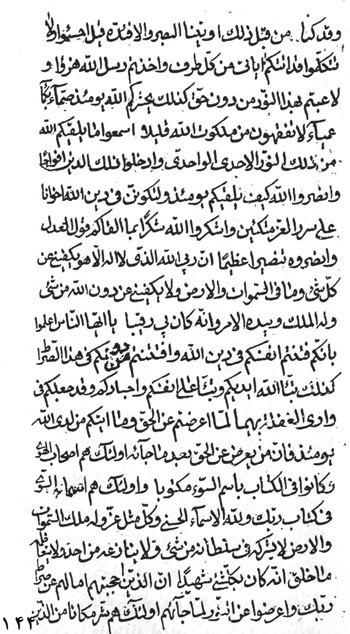 وقد كنا من قبل ذلك اوتينا البصر والافئدة قيل اخسئوا ولا
تكلموا فداتتكم اياتي من كل طرف واخذتم رسل الله هزوا و
لاعبتم بهذا النور من دون حق كذلك يحشركم الله يومئذ صماء بكما
عمياء لا تفقهون من ملكوت الله قليلا اسمعوا ما يلقيكم الله
من ذلك النور الاحدى الواحدى وادخلوا فلك الدين افواجا
وانصروا الله كيف يلقيكم يومئذ ولتكونن في دين الله اخوانا
على سرر العز متكئين واشكروا الله شكرا بما القاكم قول العدل
وانصروه نصرا عظيما ان ربي الله الذي لا اله الا هو يكفي عن
كل شئ وما في السموات والارض ولا يكفي عن دون الله من شئ
وله الملك وبيده الامر وانه كان بي رقيبا يا ايها الناس اعلموا
بانكم فتنتم انفسكم في دين الله وافتنتم من دونكم في هذا الصراط
كذلك تبت الله ايديكم وبشاء على انفسكم واجسادكم وقد جعلكم في
وادي الغفلة بهيما لما اعرضتم عن الحق وما اتيكم من لدى الله
يومئذ فانه من يعرض عن الحق بعد ما جائه اولئك هم اصحاب
وكانوا في الكتاب باسم السوء مكتوبا واولئك هم
في كتاب ربك ولله الاسماء الحسنى وكل مثل عز وله ملك السموات
والارض لا يشركه في سلطانه من شئ ولا ينازعه من احد ولا
مما خلق انه كان بكل شئ شهيدا ان الذين اعجبتهم اموالهم عن
ربك واعرضوا عن لما جائهم اولئك هم شر مكانا من الذين
١٤٤